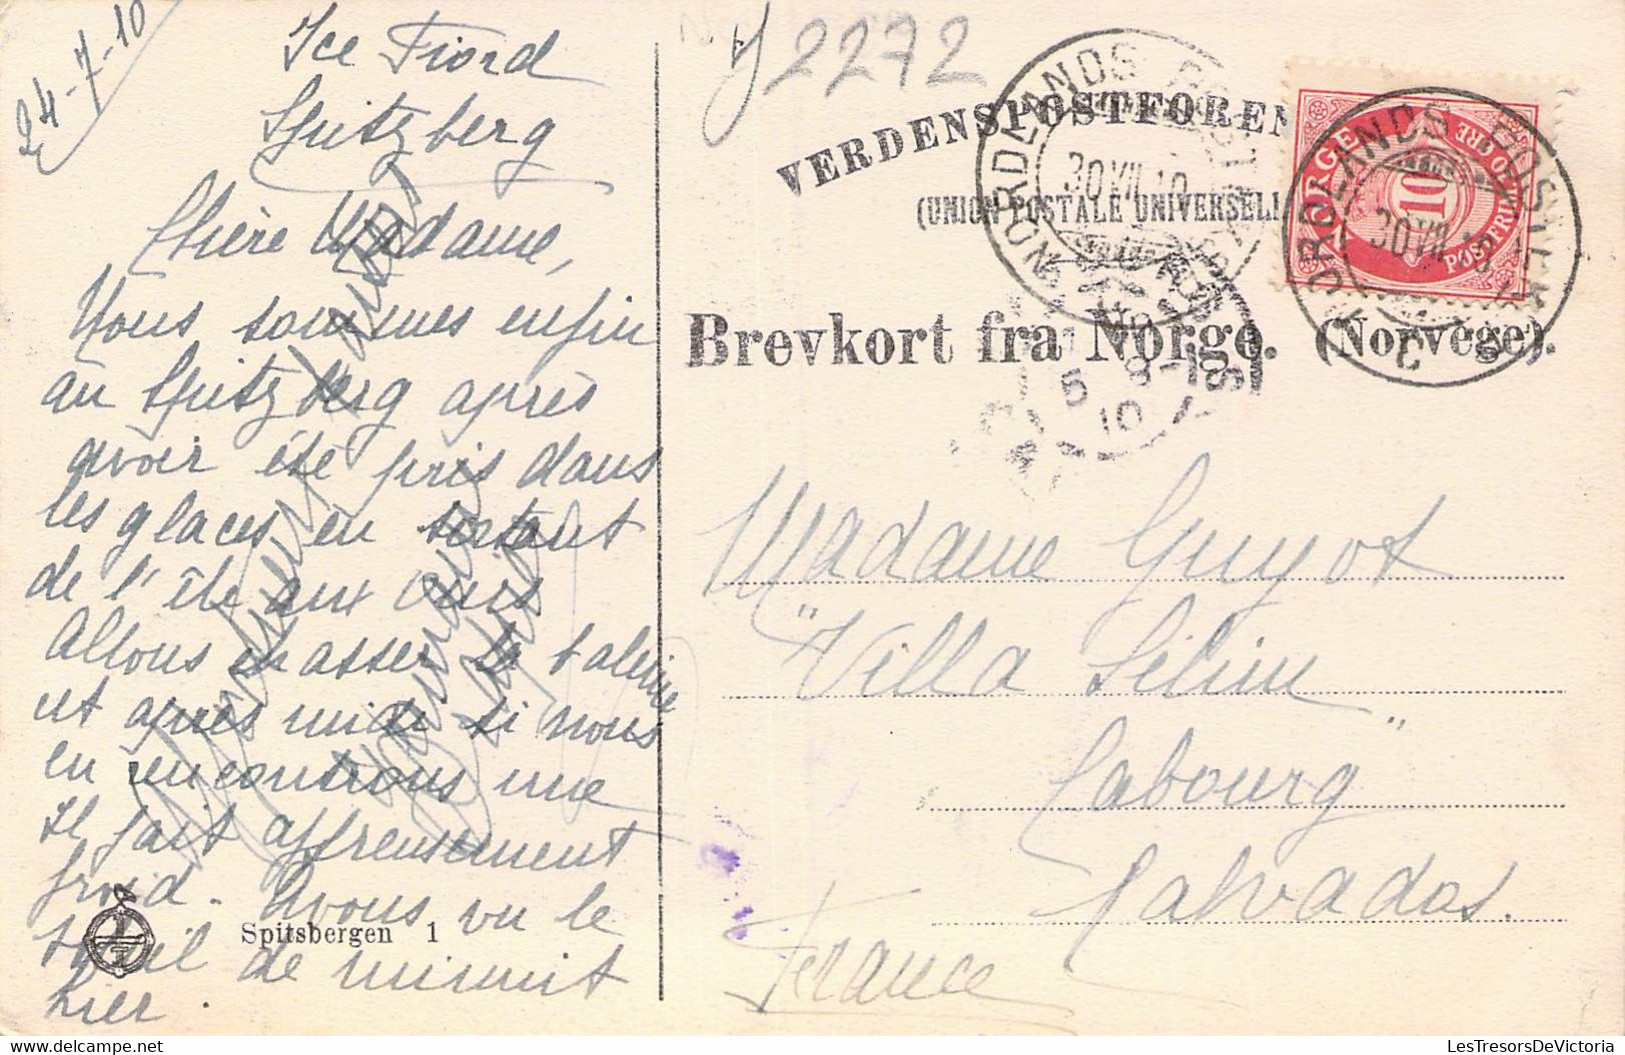 24-7-10
Ice Fiord
Spitzberg
Chère Madame,
Nous sommes enfin
au Spitzberg après
avoir été pris dans
les glaces en sortant
de l'île aux Ours
Allons chasser la baleine
cet après midi si nous
en rencontrons une
Il fait affreusement
froid. Avons vu le
soleil de minuit
hier.
Spitsbergen 1
2272
VERDENSPOSTFOREN
(UNION POSTALE UNIVERSELL
Brevkort fra Norge. (Norvège).
NORDLANDS POSTEKSP
30 VII 10
5 8
10
NORGE
10
POSTFRIM
10 ØRE
NORDLANDS POSTEKSP
30 VII 10
C
Madame Guyot
"Villa Sélim"
Cabourg
Calvados.
France
LesTresorsDeVictoria
LesTresorsDeVictoria.com